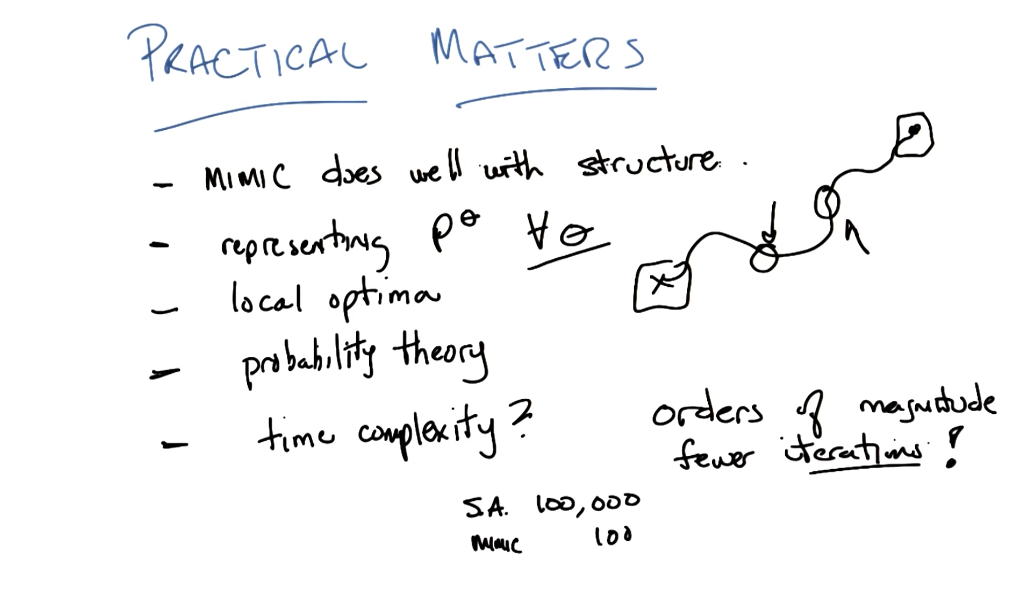 PRACTICAL MATTERS
- MIMIC does well with structure.
- representing P^θ ∀θ
- local optima
- probability theory
- time complexity?
orders of magnitude
fewer iterations!
S.A. 100,000
MIMIC 100